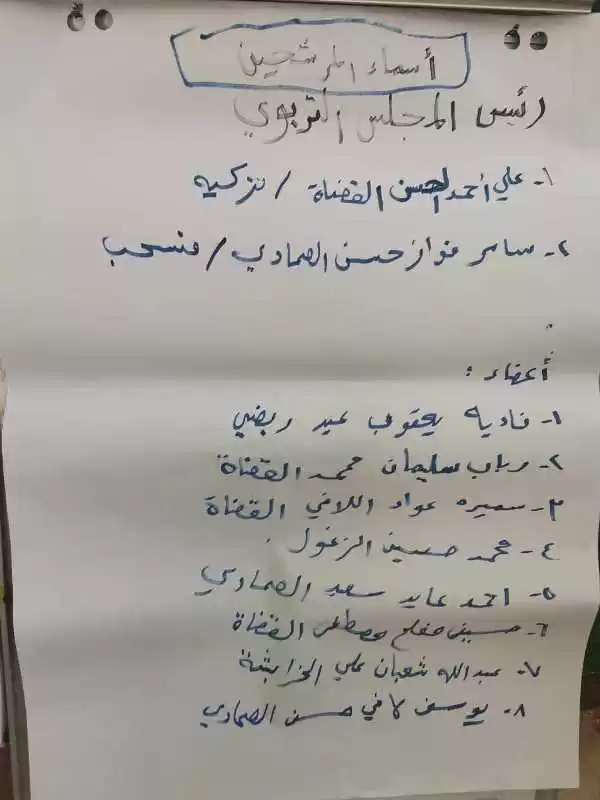 أسماء المرشحين
رئيس المجلس التربوي
١- علي أحمد الحسن القضاة / تزكيه
٢- سامر فواز حسن الصمادي / منسحب
أعضاء :
١- فاديه يعقوب عيد ربضي
٢- رباب سليمان محمد القضاة
٣- سميره عواد اللافي القضاة
٤- محمد حسين الزغول .
٥- احمد عايد سعد الصمادي
٦- حسين مفلح مصطفى القضاة
٧- عبدالله شعبان علي الخرابشة
٨- يوسف لافي حسن الصمادي